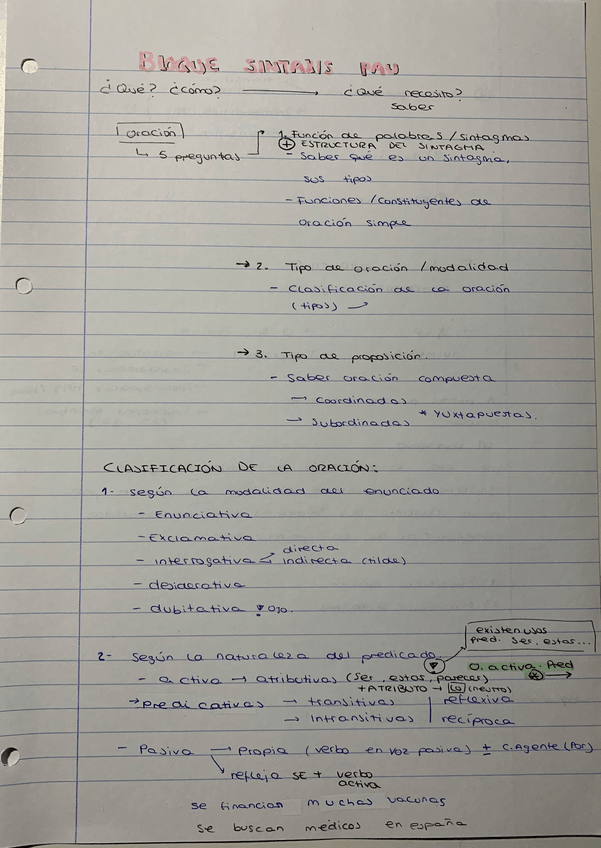 BLOQUE SINTAXIS PAU
¿Qué? ¿cómo? → ¿Qué necesito?
saber
oración
↳ 5 preguntas
1. Función de palabras / sintagmas
⊕ ESTRUCTURA DEL SINTAGMA
- Saber qué es un sintagma,
sus tipos
- Funciones / constituyentes de
oración simple
→ 2. Tipo de oración / modalidad
- Clasificación de la oración
(tipos) →
→ 3. Tipo de proposición.
- Saber oración compuesta
→ Coordinadas
→ Subordinadas * Yuxtapuestas.
CLASIFICACIÓN DE LA ORACIÓN:
1- Según la modalidad del enunciado
- Enunciativa
- Exclamativa
- interrogativa directa
indirecta (tilde)
- desiderativa
- dubitativa ojo.
existen usos
pred. Ser, estar...
2- Según la naturaleza del predicado
O. activa. Pred
- activa → atributivas (Ser, estar, parecer)
+ ATRIBUTO → LO (neutro)
→ Predicativas → transitivas | reflexiva
→ Intransitivas | recíproca
- Pasiva → Propia (verbo en voz pasiva) ± C.Agente (Por)
refleja SE + verbo
activa
Se financian muchas vacunas
Se buscan médicos en españa